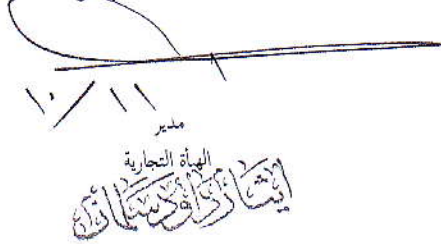 ١٠/١١
مدير
الهيأة التجارية
ايشار داؤد سلمان